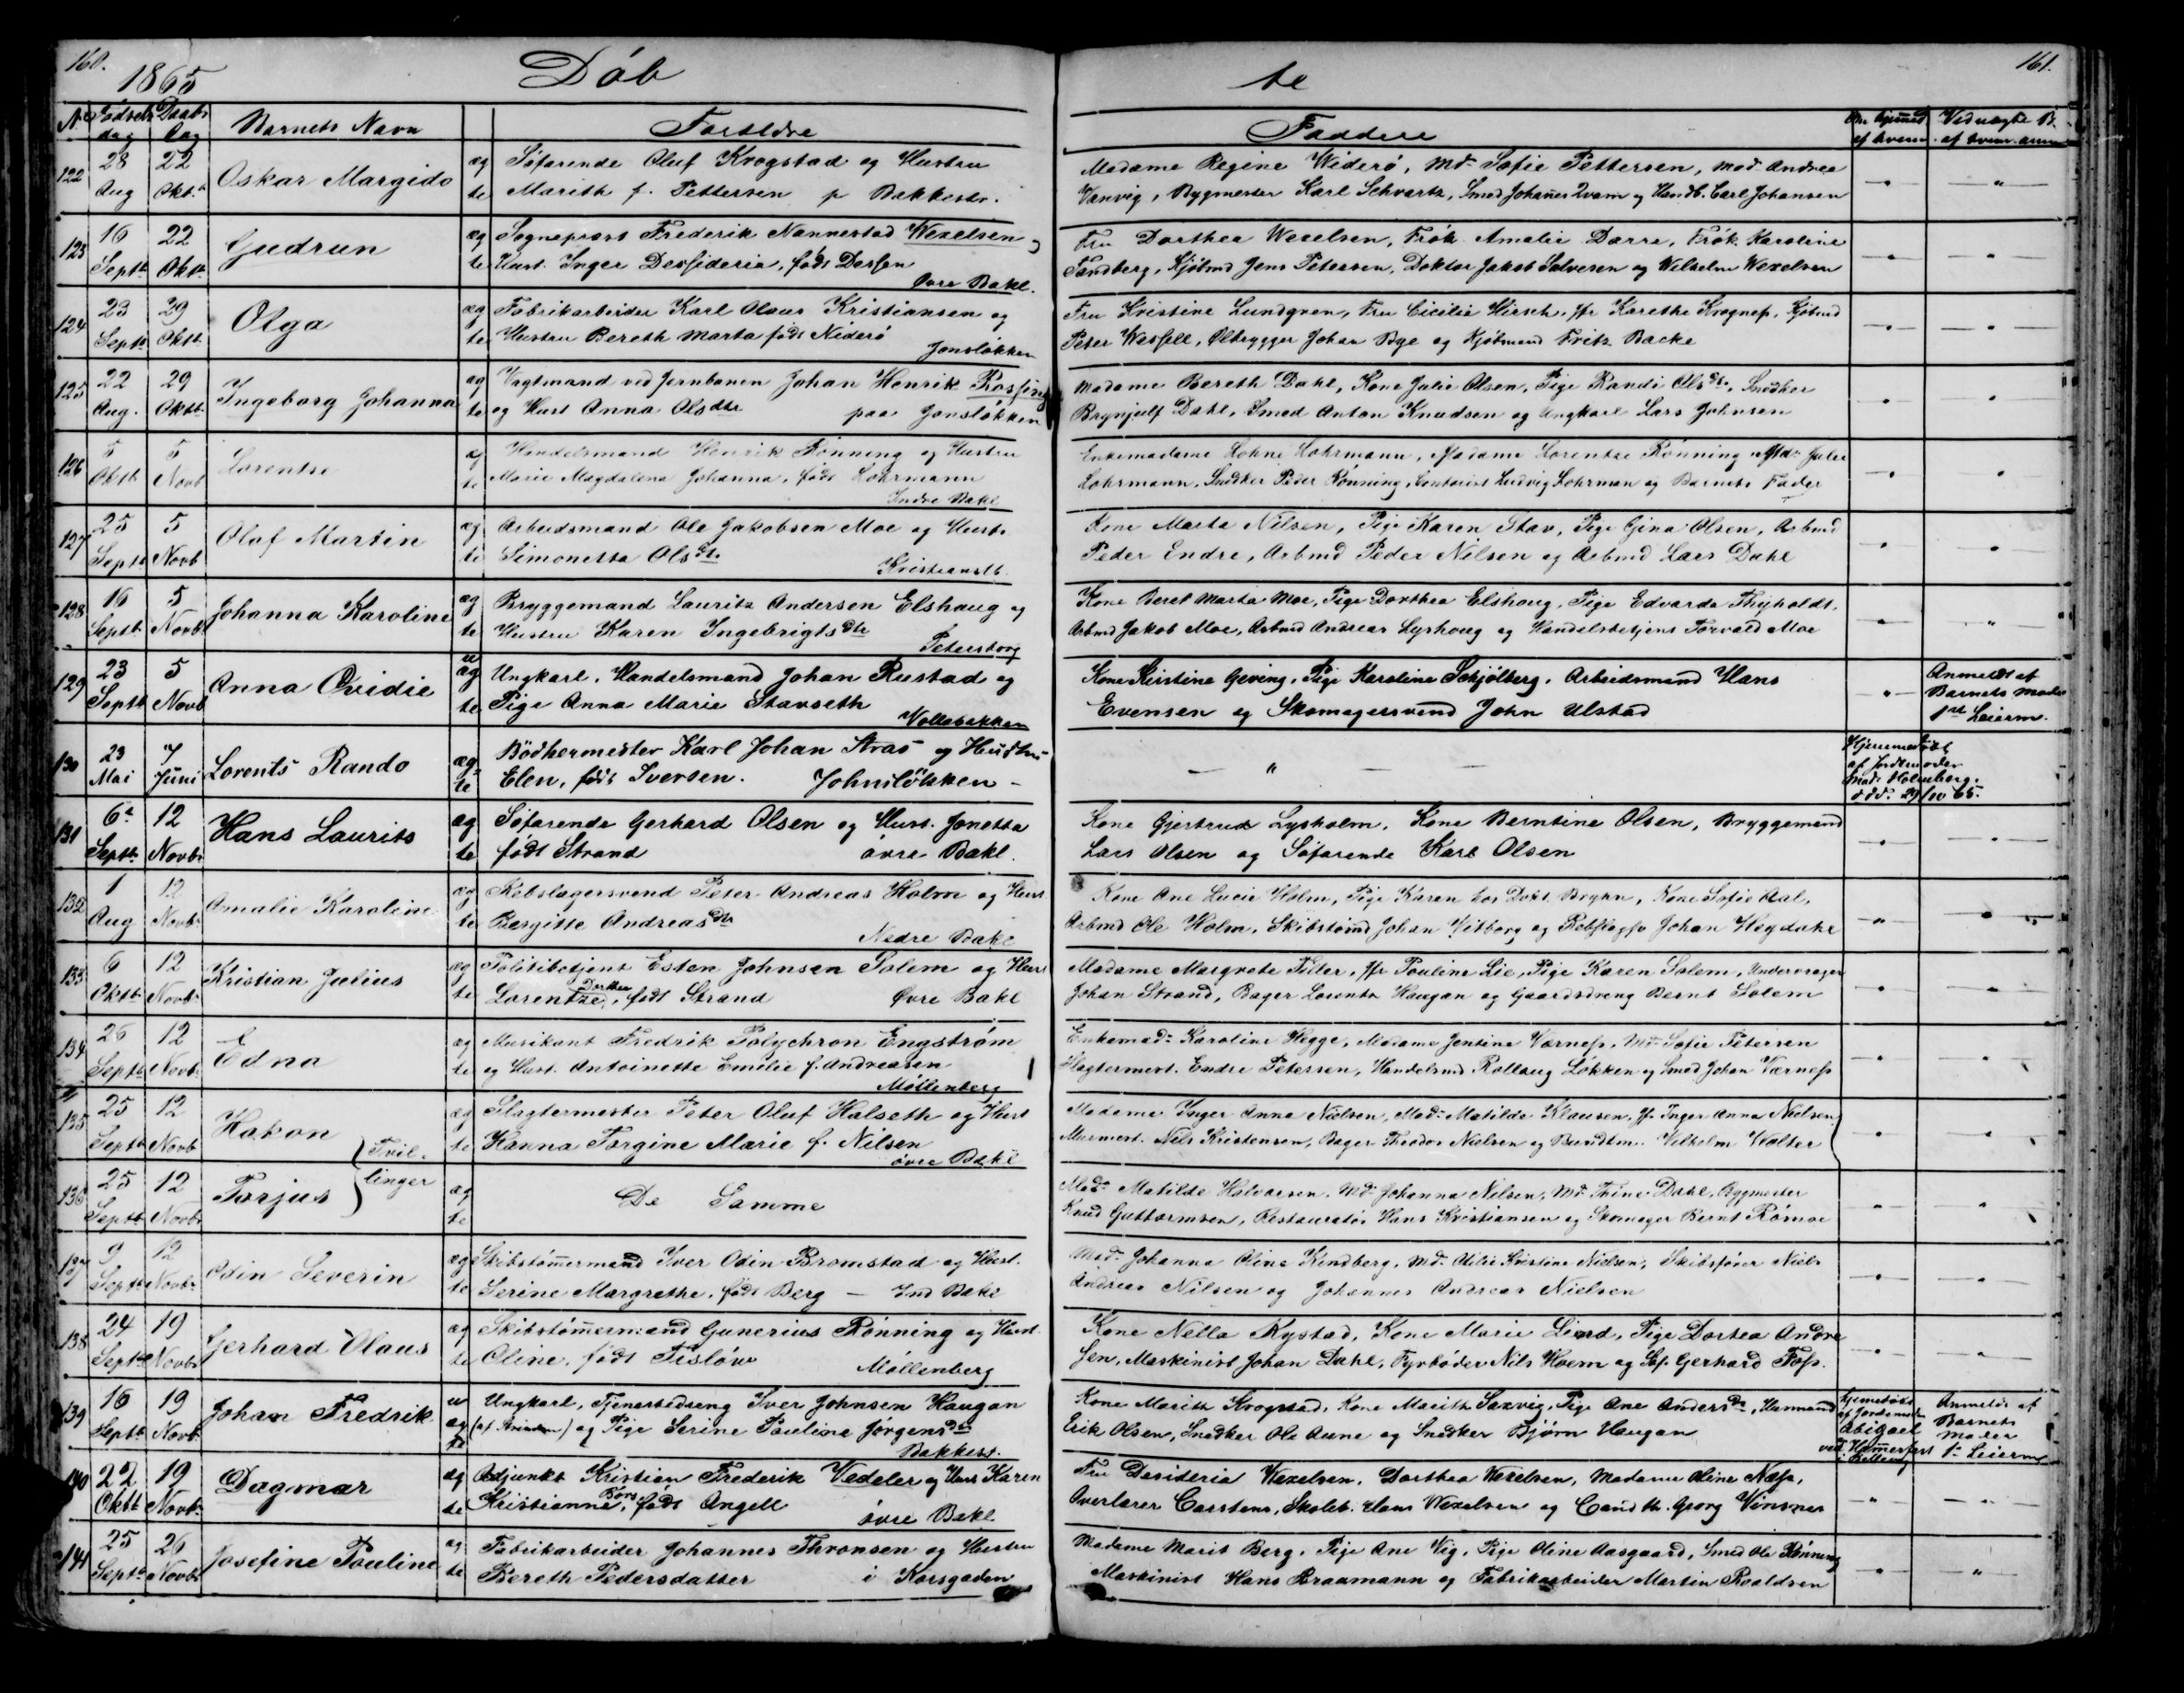 160.
1865
Döb
te
161.
No Fødsels dag Daabs Dag Barnets Navn Forældre Faddere Om hjemmed. af hvem Ved uægte B. af hvem anm
122 28 Aug 22 Oktb Oskar Margido æg te Søfarende Oluf Krogstad og Hustru
Marith f. Pettersen p Bakkestr.
Madame Regine Widerö, Md. Sofie Pettersen, Mad. Andrea
Vanvig, Bygmester Karl Schvartz, Smed Johañes Qvam og Handb. Carl Johansen
123 16 Septb 22 Oktb Gudrun æg te Sogneprest Frederik Nannestad Wexelsen og
Hust. Inger Desideria, født Dessen
Øvre Bakl.
Fru Dorthea Wexelsen, Frøk. Amalie Darre, Frøk. Karoline
Sandberg, Kjöbmd Jens Petersen, Doktor Jakob Salvesen og Wilhelm Wexelsen
124 23 Septb 29 Oktb Olga æg te Fabrikarbeider Karl Olaus Kristiansen og
Hustru Bereth Marta født Niderö
Jonsløkken
Fru Kristine Lundgren, Fru Cicilie Hirsch, Jfr Karethe Krognes, Kjöbmd
Peter Wessell, Ølbrygger Johan Bye og Kjöbmand Fritz Backe
125 22 Aug. 29 Oktb Ingeborg Johanna æg te Vagtmand ved Jernbanen Johan Henrik Rossing
og Hust Anna Olsdtr paa Jonsløkken
Madame Bereth Dahl, Kone Julie Olsen, Pige Randi Olsdt., Snedker
Brynjulf Dahl, Smed Anton Knudsen og Ungkarl Lars Johnsen
126 5 Oktb 5 Novb Lorentse æg te Handelsmand Henrik Rönning og Hustru
Marie Magdalena Johanna, født Lohrmann
Indre Bakl.
Enkemadame Lohne Lohrmann, Madame Lorentse Rönning, Md. Julie
Lohrmann, Snedker Peder Rönning, Contorist Ludvig Lohrman og Barnets Fader
127 25 Septb 5 Novb Olaf Martin æg te Arbeidsmand Ole Jakobsen Moe og Hust.
Simonetta Olsdt.
Kristianstb.
Kone Marta Nilsen, Pige Karen Stav, Pige Gina Olsen, Arbmd
Peder Endre, Arbmd Peder Nilsen og Arbmd Lars Dahl
128 16 Septb 5 Novb Johanna Karoline æg te Bryggemand Lauritz Andersen Elshaug og
Hustru Karen Ingebrigtsdtr
Petersborg
Kone Beret Marta Moe, Pige Dorthea Elshoug, Pige Edvarda Thyholdt,
Arbmd Jakob Moe, Arbmd Andreas Lyshoug og Handelsbetjent Torvald Moe
129 23 Septb 5 Novb Anna Ovidie u æg te Ungkarl, Handelsmand Johan Rustad og
Pige Anna Marie Stavseth
Vollabakken
Kone Kirstine Geving, Pige Karoline Schjölberg, Arbeidsmand Hans
Evensen og Skomagersvend John Ulstad
Anmeldt af
Barnets Moder
1ste Leierm.
130 23 Mai 7 Juni Lorents Rando æg te Bödkermester Karl Johan Aras og Hustru
Elen, født Iversen. Johnsløkken
Hjemmedöbt
af Jordemoder
Mad. Holmberg.
död. 29/10 65.
131 6t Septb 12 Novb Hans Laurits æg te Søfarende Gerhard Olsen og Hust. Jonetta
født Strand øvre Bakl.
Kone Gjertrud Lysholm, Kone Berntine Olsen, Bryggemand
Lars Olsen og Søfarende Karl Olsen
132 1 Aug 12 Novb Amalie Karoline æg te Rebslagersvend Peter Andreas Holm og Hust
Bergitte Andreasdtr
Nedre Bakl
Kone Ane Lucie Holm, Pige Karen hos Dokt. Bryhn, Kone Sofie Aal,
Arbmd Ole Holm, Skibstömd Johan Vitborg og Rebslagsv Johan Hegdahl
133 6 Oktb 12 Novb Kristian Julius æg te Politibetjent Esten Johnsen Solem og Hust
Lorentze Dorthea, født Strand Øvre Bakl
Madame Margrete Filler, Jfr Pauline Lie, Pige Karen Solem, Undervager
Johan Strand, Bager Lorents Haugan og Gaardsdreng Bernt Solem
134 26 Septb 12 Novb Edna æg te Musikant Fredrik Polychron Engström
og Hust. Antoinette Emilie f. Andreasen
Møllenberg
Enkemad. Karoline Hegge, Madame Jentine Værnes, Md. Sofie Petersen
Slagtermest. Endre Petersen, Handelsmd Rollaug Løkken og Smed Johan Værnes
135 25 Septb 12 Novb Hakon æg te Slagtermester Peter Oluf Halseth og Hust
Hanna Torgine Marie f. Nilsen
øvre Bakl
Madame Inger Anna Nielsen, Mad. Matilde Klausen, Jf. Inger Anna Nielsen
Murmest. Nils Kristensen, Bager Theodor Nielsen og Bundtm. Vilhelm Walter
Tvil-
linger
136 25 Septb 12 Novb Torjus æg te De Samme
Mad. Matilde Halvorsen, Md. Johanna Nilsen, Md. Thine Dahl, Bygmester
Knud Guttormsen, Restauratör Hans Kristiansen og Skomager Bernt Römoe
137 9 Septb 12 Novb Odin Severin æg te Skibstömermand Iver Odin Bromstad og Hust.
Serine Margrethe, født Berg – Ind Bakl
Mad. Johanna Oline Kindberg, Md. Otilie Kristine Nielsen, Skibsfører Niels
Andreas Nilsen og Johannes Andreas Nielsen
138 24 Septb 19 Novb Gerhard Olaus æg te Skibstömermand Gunerius Rönning og Hust.
Oline, født Fisløw Møllenberg
Kone Nella Rystad, Kone Marie Lierd, Pige Dortea Andre
sen, Maskinist Johan Dahl, Fyrbøder Nils Hoem og Søf. Gerhard Foss.
139 16 Septb 19 Novb Johan Fredrik u æg te Ungkarl, Tjenestedreng Iver Johnsen Haugan
(af Strinden) og Pige Serine Pauline Jörgensdtr
Bakkest.
Kone Marith Krogstad, Kone Marith Saxvig, Pige Ane Andersdtr, Husmand
Erik Olsen, Snedker Ole Aune og Snedker Bjørn Haugan
Hjemmedöbt
af Jordemoder
Abigael
ved Hammerfest
i Bakland
Anmeldt af
Barnets
Moder
1ste Leierm
140 22 Oktb 19 Novb Dagmar æg te Adjunkt Kristian Frederik Vedeler og Hust Karen
Kristianne Bors, født Angell øvre Bakl.
Fru Desideria Wexelsen, Dorthea Wexelsen, Madame Oline Næss,
Overlærer Carstens, Skoleb. Hans Wexelsen og Cand th. Georg Vinsnes
141 25 Septb 26 Novb Josefine Pauline æg te Fabrikarbeider Johannes Thronsen og Hustru
Bereth Pedersdatter i Korsgaden
Madame Marit Berg, Pige Ane Vig, Pige Oline Aasgaard, Smed Ole Rönning
Maskinist Hans Braamann og Fabrikarbeider Martin Roaldsen